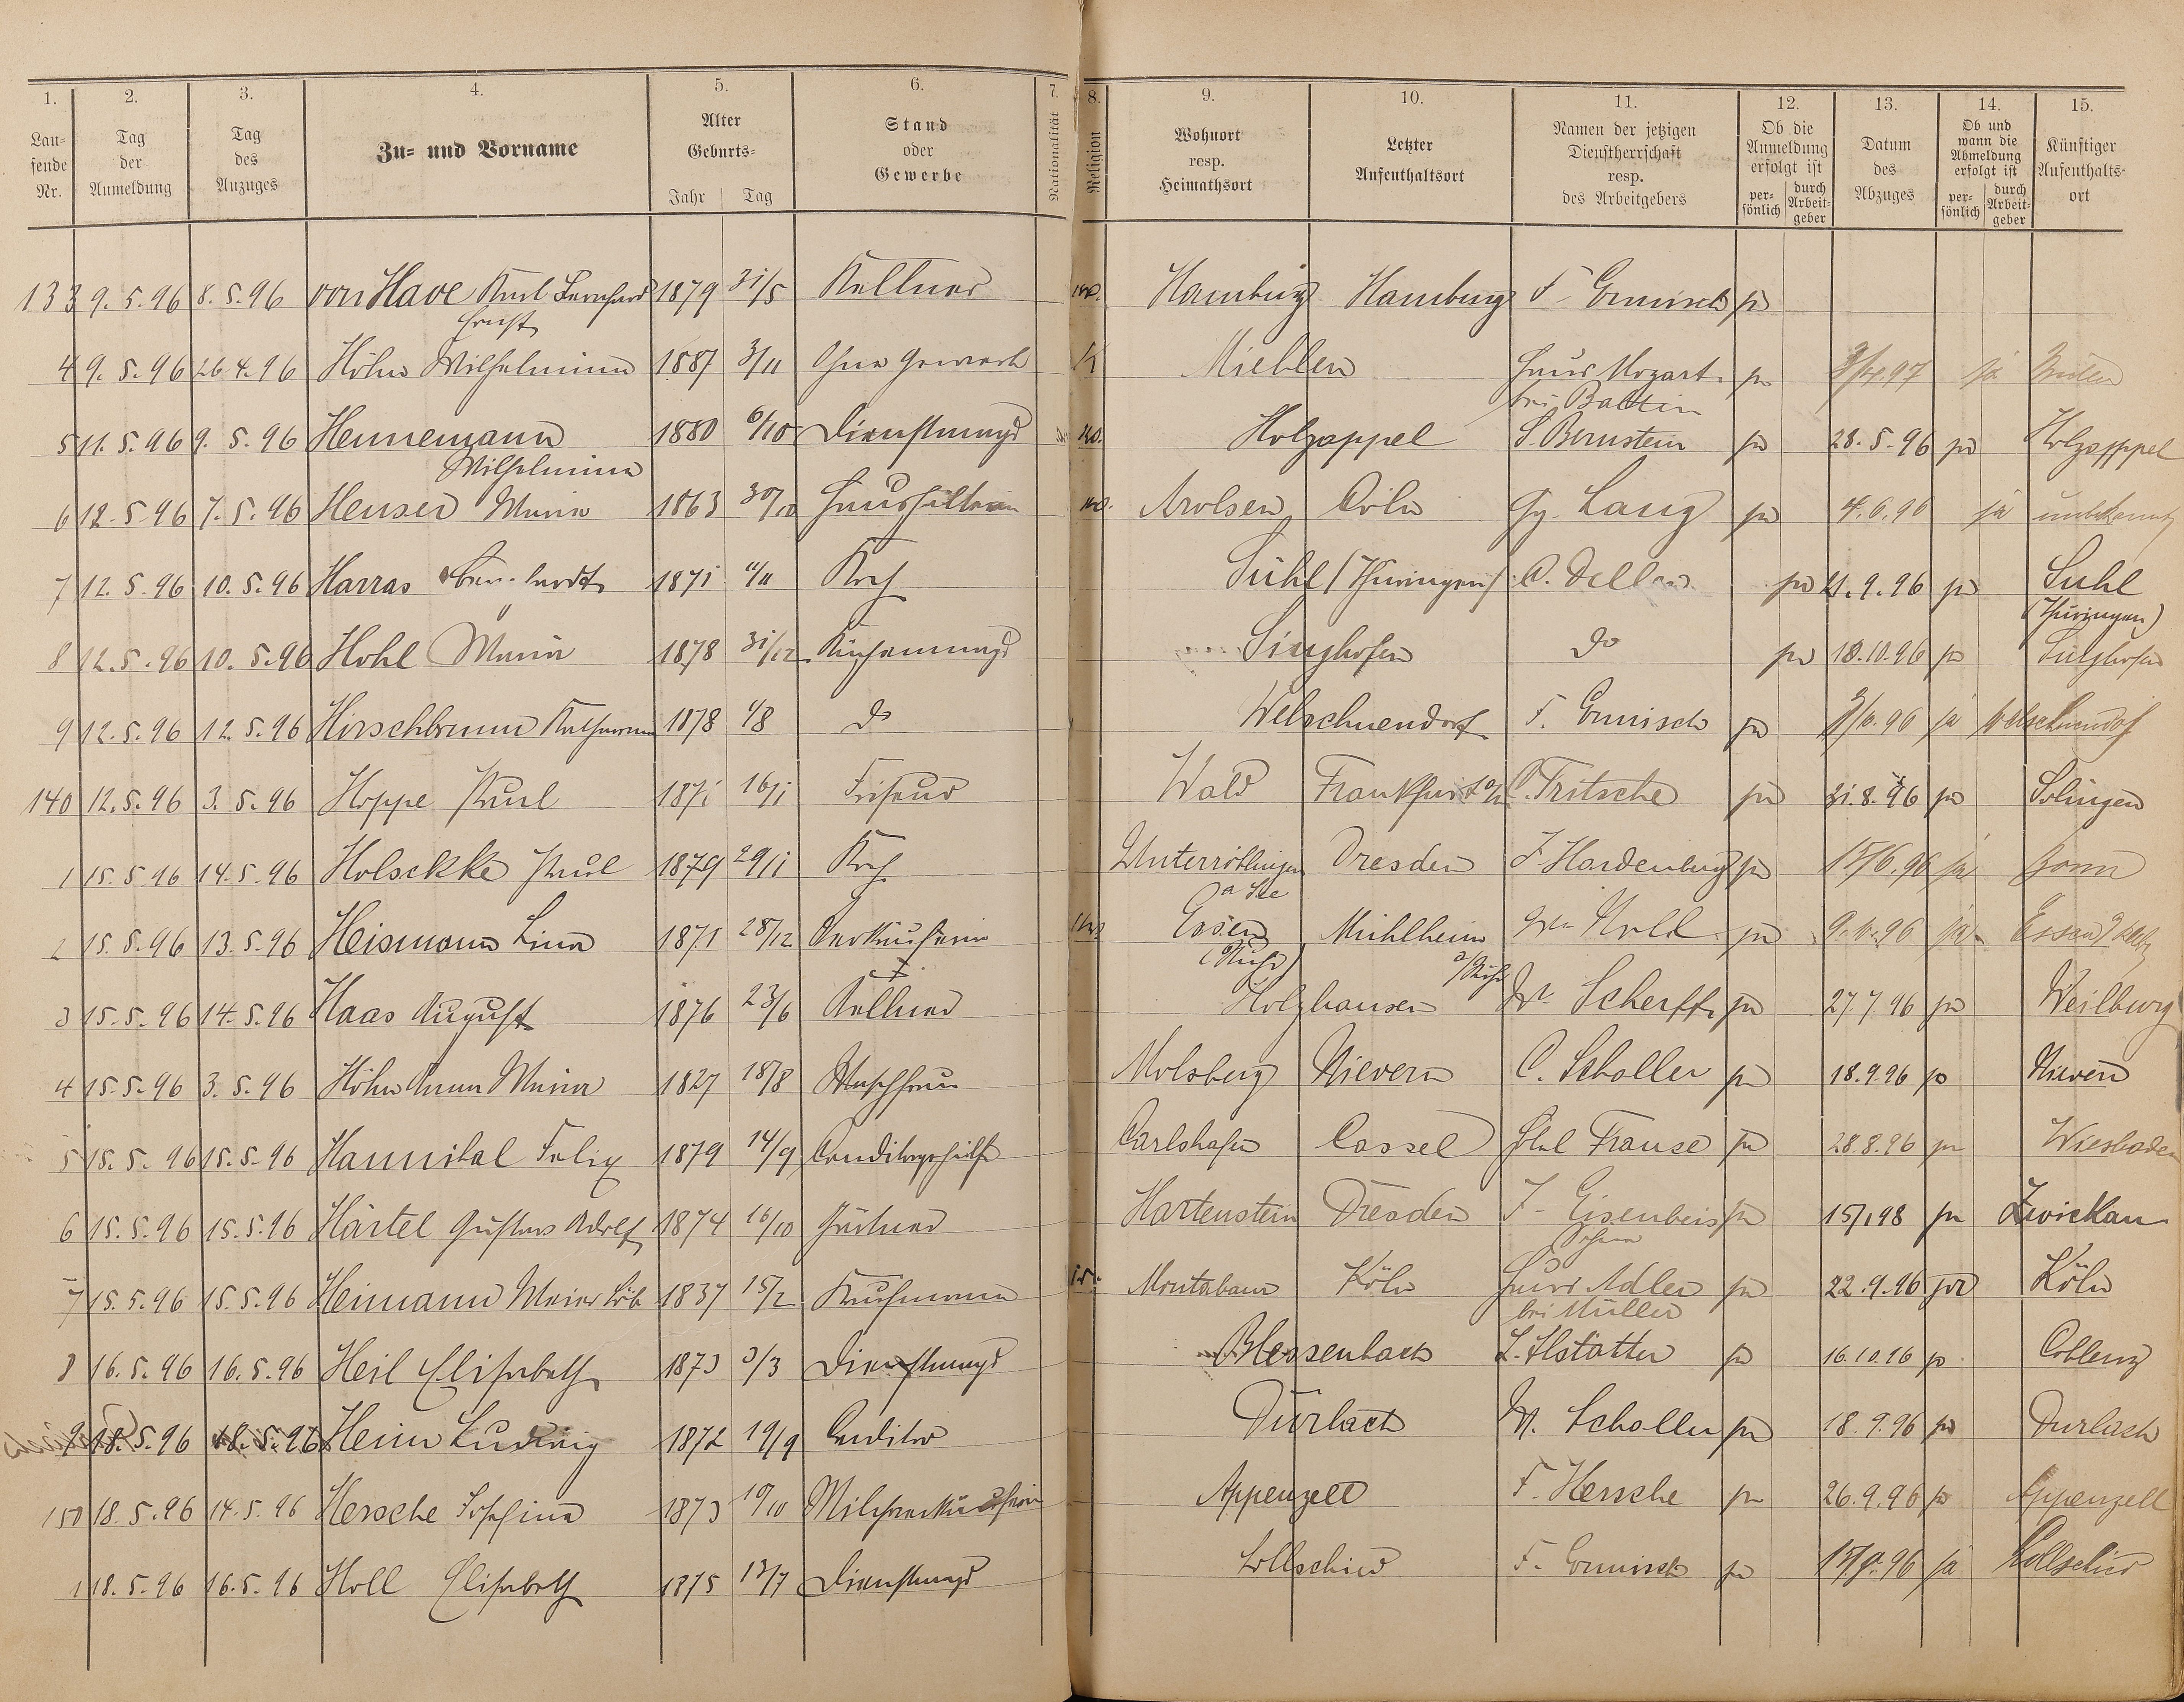 1. 2. 3. 4. 5. 6. 7. 8. 9. 10. 11. 12. 13. 14. 15.
Laufende Nr. Tag der Anmeldung Tag des Anzuges Zu- und Vorname Alter Geburts- Jahr Tag Stand oder Gewerbe Nationalität Religion Wohnort resp. Heimathsort Letzter Aufenthaltsort Namen der jetzigen Dienstherrschaft resp. des Arbeitgebers Ob die Anmeldung erfolgt ist persönlich durch Arbeitgeber Datum des Abzuges Ob und wann die Abmeldung erfolgt ist persönlich durch Arbeitgeber Künftiger Aufenthaltsort
133 9.5.96 8.5.96 von Have Karl Bernhard 1879 31/5 Kellner Hamburg Hamburg F. Ermisch ja
Ernst
4 9.5.96 26.4.96 Höhn Wilhelmine 1887 3/11 Ohne Gewerbe Miehlen Haus Mozart ja 97 ja
bei Baltin
5 11.5.96 9.5.96 Hennemann 1880 6/10 Dienstmagd Holzappel S. Bernstein ja 28.5.96 ja Holzappel
Wilhelmine
6 12.5.96 7.5.96 Heuser Maria 1863 30/10 Haushälterin Arolsen Cöln Gg. Lang ja 4.6.96 ja unbekannt
7 12.5.96 10.5.96 Harras 1871 Koch Suhl (Thüringen) C. ja 21.9.96 ja Suhl
(Thüringen)
8 12.5.96 10.5.96 Hohl Maria 1878 31/12 Küchenmagd Singhofen do ja 18.10.96 ja Singhofen
9 12.5.96 12.5.96 Hirschbrunn Katharina 1878 1/8 do Welschnendorf F. Ermisch ja 96 ja Welschnendorf
140 12.5.96 3.5.96 Hoppe Karl 1871 16/1 Friseur Wald Frankfurt a/M C. Fritsche ja 31.8.96 ja Solingen
1 15.5.96 14.5.96 Holsckke Paul 1879 29/1 Koch Unterröblingen Dresden F Hardenberg ja 15/6.96 ja Bonn
a See
2 15.5.96 13.5.96 Heismann Lina 1871 28/12 Verkäuferin Essen Mühlheim Noll ja 9.6.96 ja Essen
(Ruhr) a/Ruhr
3 15.5.96 14.5.96 Haas August 1876 23/6 Kellner Holzhausen Wr. Scherff ja 27.7.96 ja Weilburg
4 15.5.96 3.5.96 Höhn Anna Maria 1827 18/8 Waschfrau Molsberg Nievern C. Scholler ja 18.9.96 ja Nievern
5 15.5.96 15.5.96 Hannibal Felix 1879 14/9 Conditorgehilfe Carlshafen Cassel Frause ja 28.8.96 ja Wiesbaden
6 15.5.96 15.5.96 Härtel Gustav Adolf 1874 16/10 Gärtner Hartenstein Dresden F. Eisenbeis ja 15/1 98 ja Zwickau
Sohn
7 15.5.96 15.5.96 Heimann Meier Löb 1837 15/2 Kaufmann Montabaur Köln Haus Adler ja 22.9.96 ja Köln
bei Müller
8 16.5.96 16.5.96 Heil Elisabeth 1873 3/3 Dienstmagd Blessenbach L. Hstätter ja 16.10.96 ja Coblenz
9 18.5.96 18.5.96 Heim Ludwig 1872 19/9 Conditor Durlach M. Scholler ja 18.9.96 ja Durlach
150 18.5.96 14.5.96 Hersche Josefina 1873 10/10 Milchverkäuferin Appenzell F. Hersche ja 26.9.96 ja Appenzell
1 18.5.96 16.5.96 Holl Elisabeth 1875 13/7 Dienstmagd Lollschied F. Ermisch ja 15/9.96 ja Lollschied